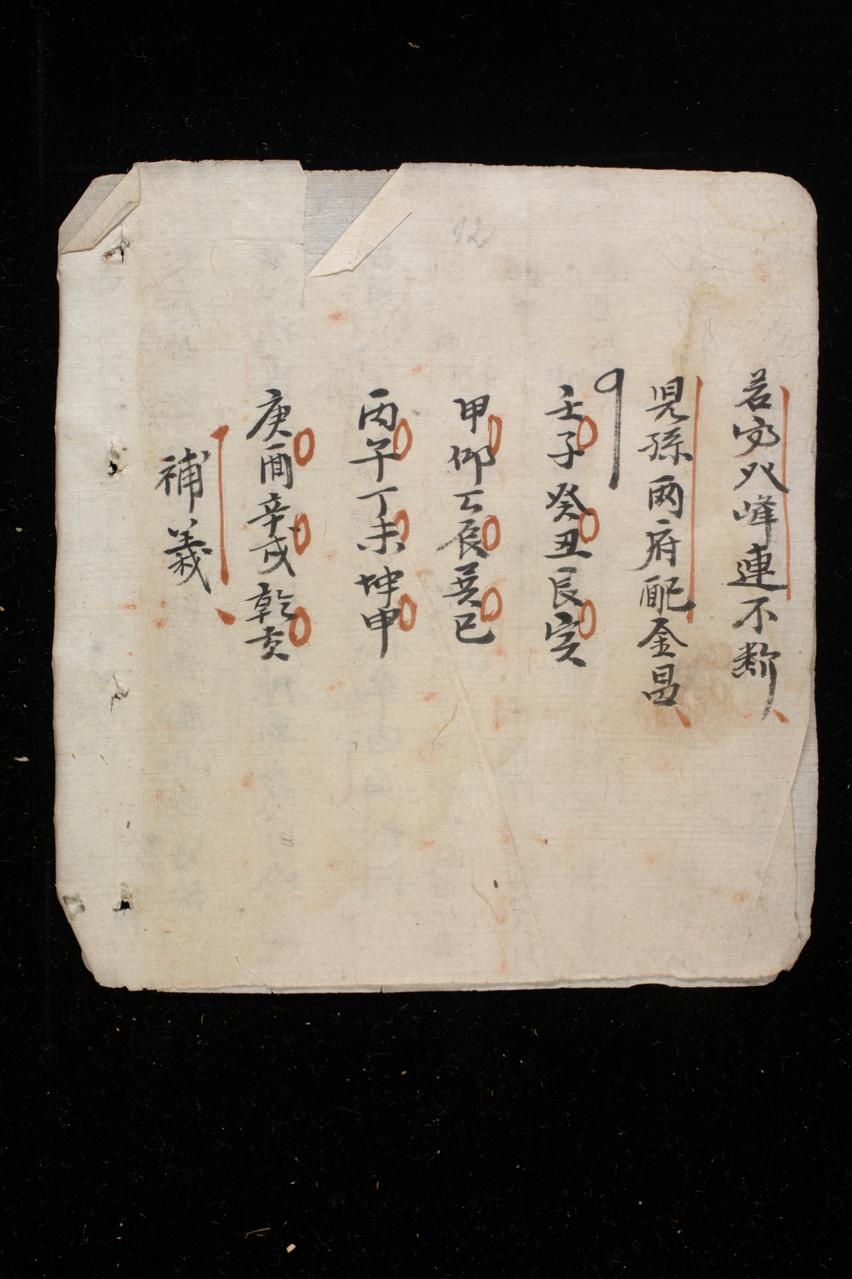 若穷八峰連不斷
児孫兩府配金昌
壬子癸丑艮寅
甲卯乙辰巽巳
丙午丁未坤申
庚酉辛戌乾亥
補義
12